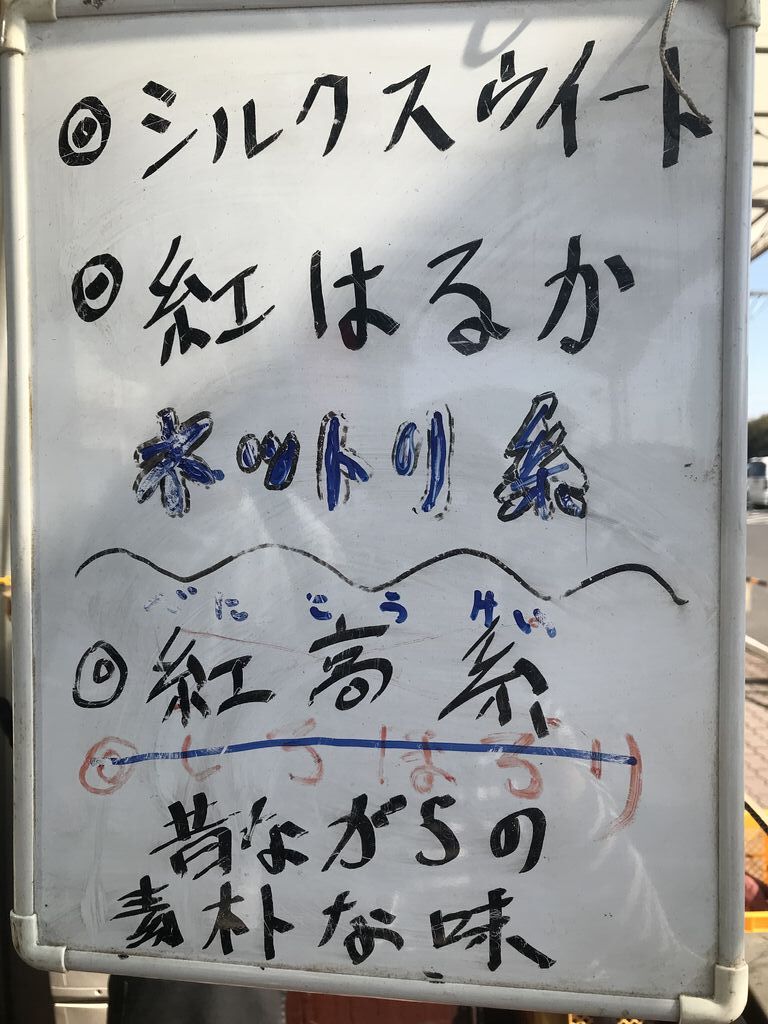 ◎シルクスウィート
◎紅はるか
ネットリ系
べにこうけい
◎紅高系
◎しろほろり
昔ながらの
素朴な味